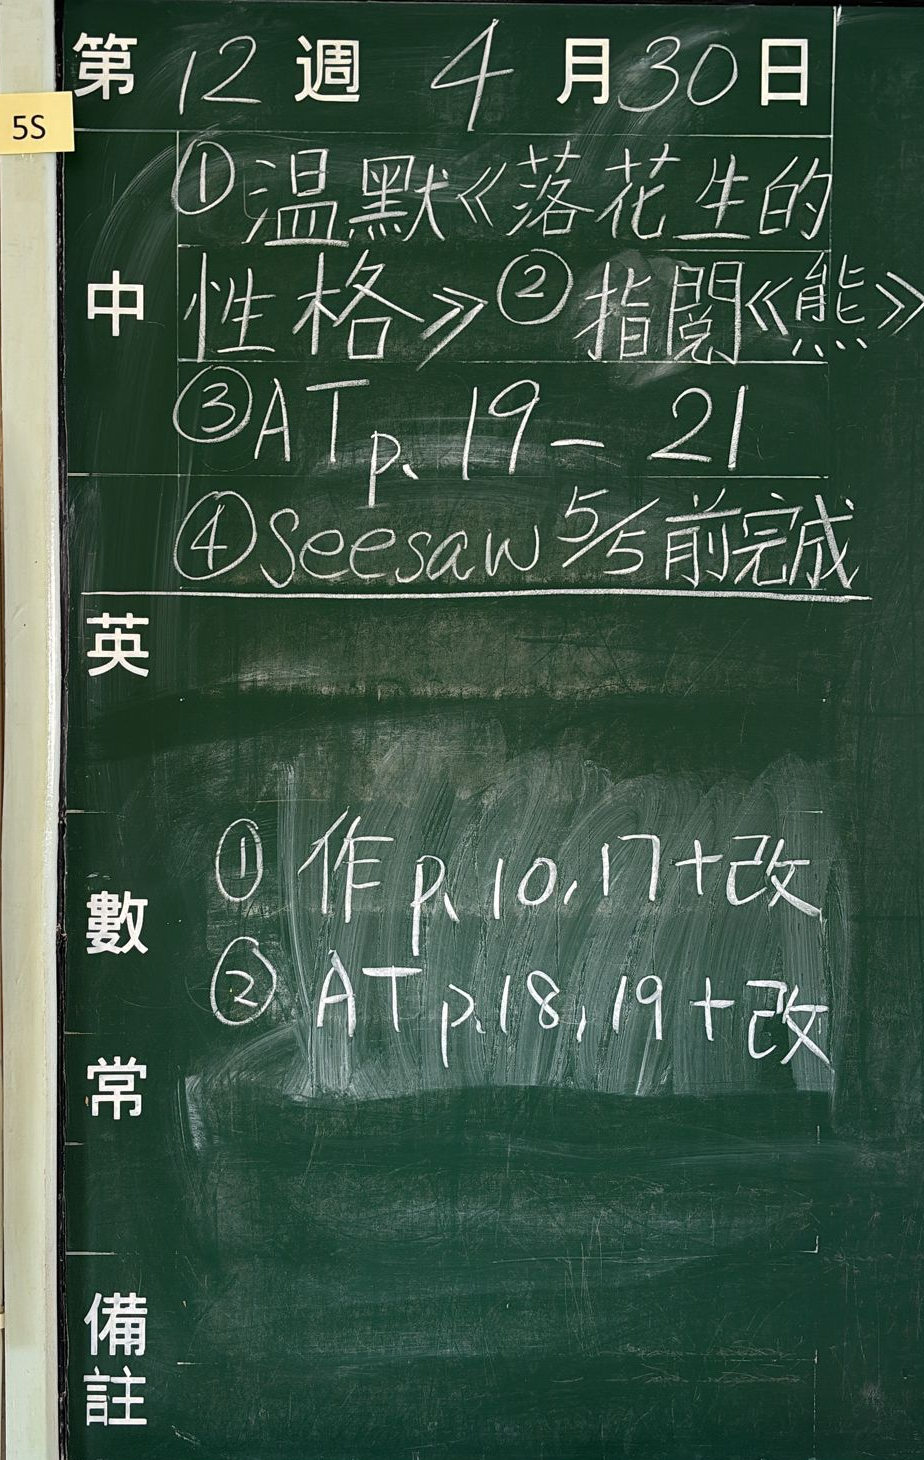 第 12 週 4 月 30 日
5S
①温默《落花生的
中 性格》②指閱《熊》
③AT p. 19 - 21
④Seesaw 5/5 前完成
英
① 作 p. 10, 17 + 改
數
② AT p. 18, 19 + 改
常
備
註